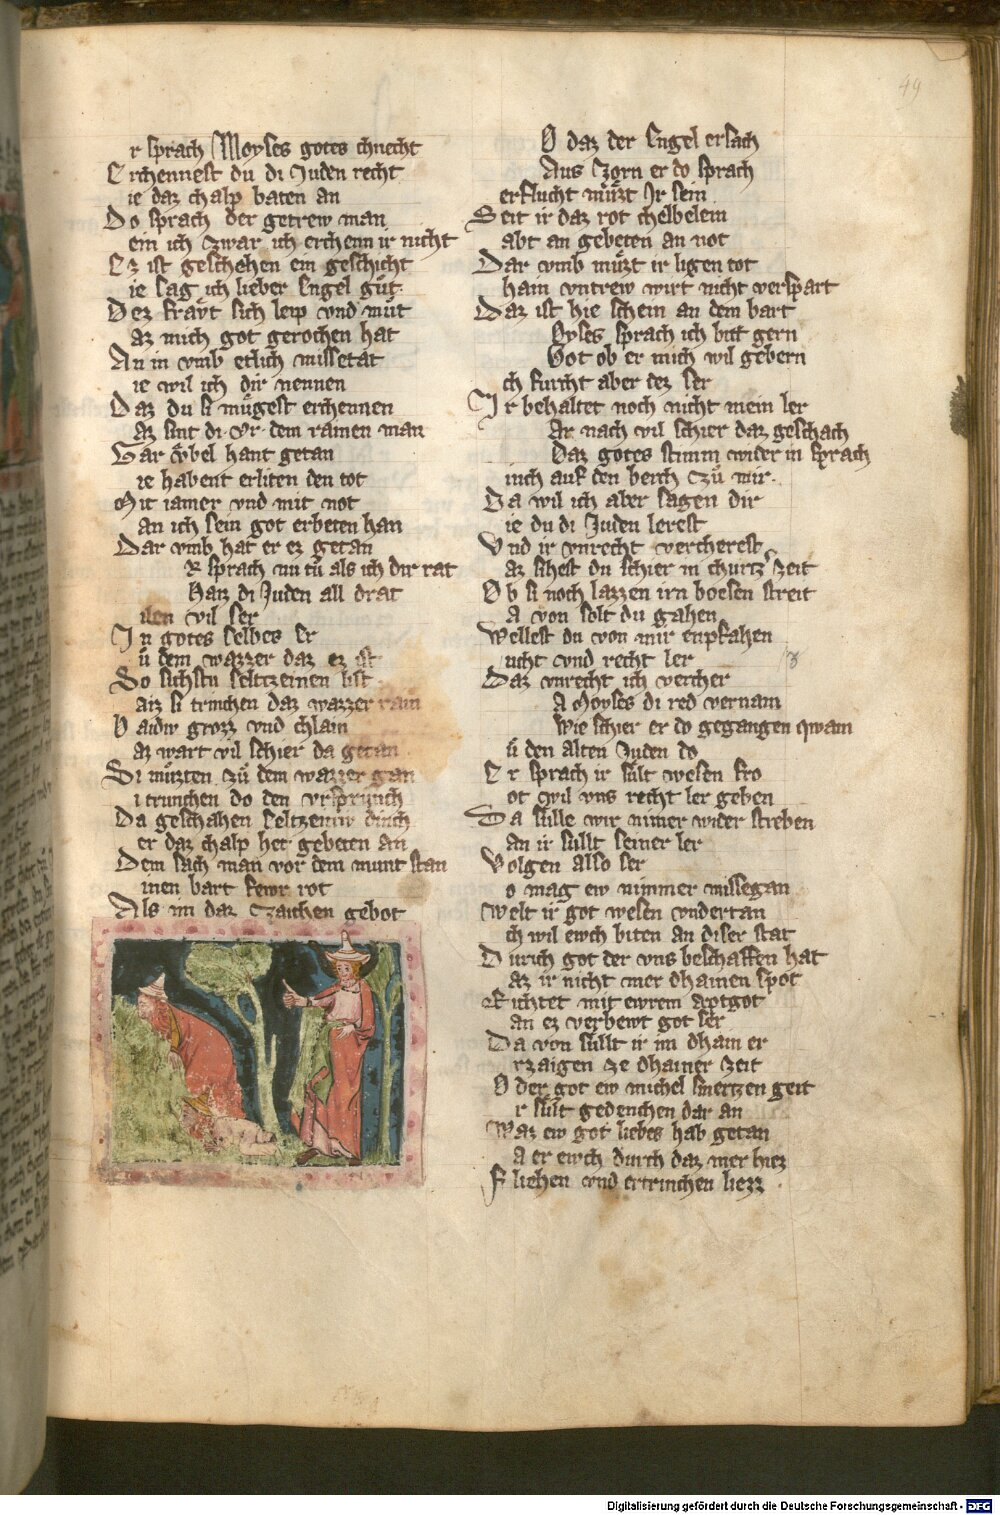 49
r sprach Moyses gotes chnecht
Erchennest du di Juden recht
ie daz chalp baten an
Do sprach der getrew man
ein ich zwar ich erchenn ir nicht
Ez ist geschehen ein geschicht
ie sag ich lieber Engel gůt
Dez frävt sich leip vnd můt
az mich got gerochen hat
An in vmb etlich missetat
ie wil ich dir nennen
Daz du si mügest erchennen
az sint di vr dem ramen man
Gar vbel hant getan
ie habent erliten den tot
Mit iamer vnd mit not
an ich sein got erbeten han
Dar vmb hat er ez getan
R sprach nu tů als ich dir rat
Haiz di Juden all drat
ilen vil ser
In gotes selbes Er
ů dem wazzer daz ez ist
So sichstu seltzeinen list
aiz si trinchen daz wazzer rain
D aidiv grozz vnd chlain
az wart vil schier da getan
Si můzten zů dem wazzer gan
i trunchen do den vrsprinch
Da geschahen seltzeniv dinch
er daz chalp het gebeten an
Dem sach man vor dem munt stan
inen bart fewr rot
Als im daz zaichen gebot
D daz der Engel ersach
Aus Zorn er do sprach
erflucht můzt Ir sein
Seit ir daz rot chelbelein
abt an gebeten an not
Dar vmb můzt ir ligen tot
hain vntrew wirt nicht verspart
Daz ist hie schein an dem bart
Oyses sprach ich bitt gern
Got ob er mich wil gebern
ch furcht aber dez ser
Ir behaltet noch nicht mein ler
Ar nach vil schier daz geschach
Daz gotes stimm wider in sprach
inch auf den berch zů mir
Da wil ich aber sagen dir
ie du di Juden lerest
Vnd ir vnrecht vercherest
az sihest du schier in churtzer zeit
Ob si noch lazzen irn boesen streit
A von solt du gahen
Wellest du von mir enpfahen
ucht vnd recht ler
Daz vnrecht ich vercher
A Moyses di red vernam
Wie schier er do gegangen qwam
ů den alten Juden do
Er sprach ir sült wesen fro
ot wil vns recht ler geben
Da sülle wir nimer wider streben
an ir süllt seiner ler
Volgen also ser
o mag ew nimmer missegan
Welt ir got wesen vndertan
ch wil ewch biten an diser stat
Durch got der vns beschaffen hat
az ir nicht mer dhainen spot
Richtet mit ewrem aptgot
an ez verbewt got ser
Da von süllt ir im dhain er
rzaigen ze dhainer zeit
Oder got ew michel smertzen geit
r sült gedenchen dar an
Waz ew got liebes hab getan
A er ewch durch daz mer hiez
Fliehen vnd ertrinchen liezz
Digitalisierung gefördert durch die Deutsche Forschungsgemeinschaft - DFG